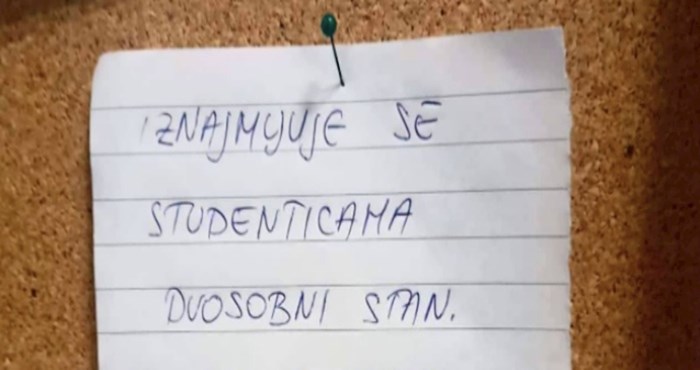 IZNAJMLJUJE SE
STUDENTICAMA
DVOSOBNI STAN.